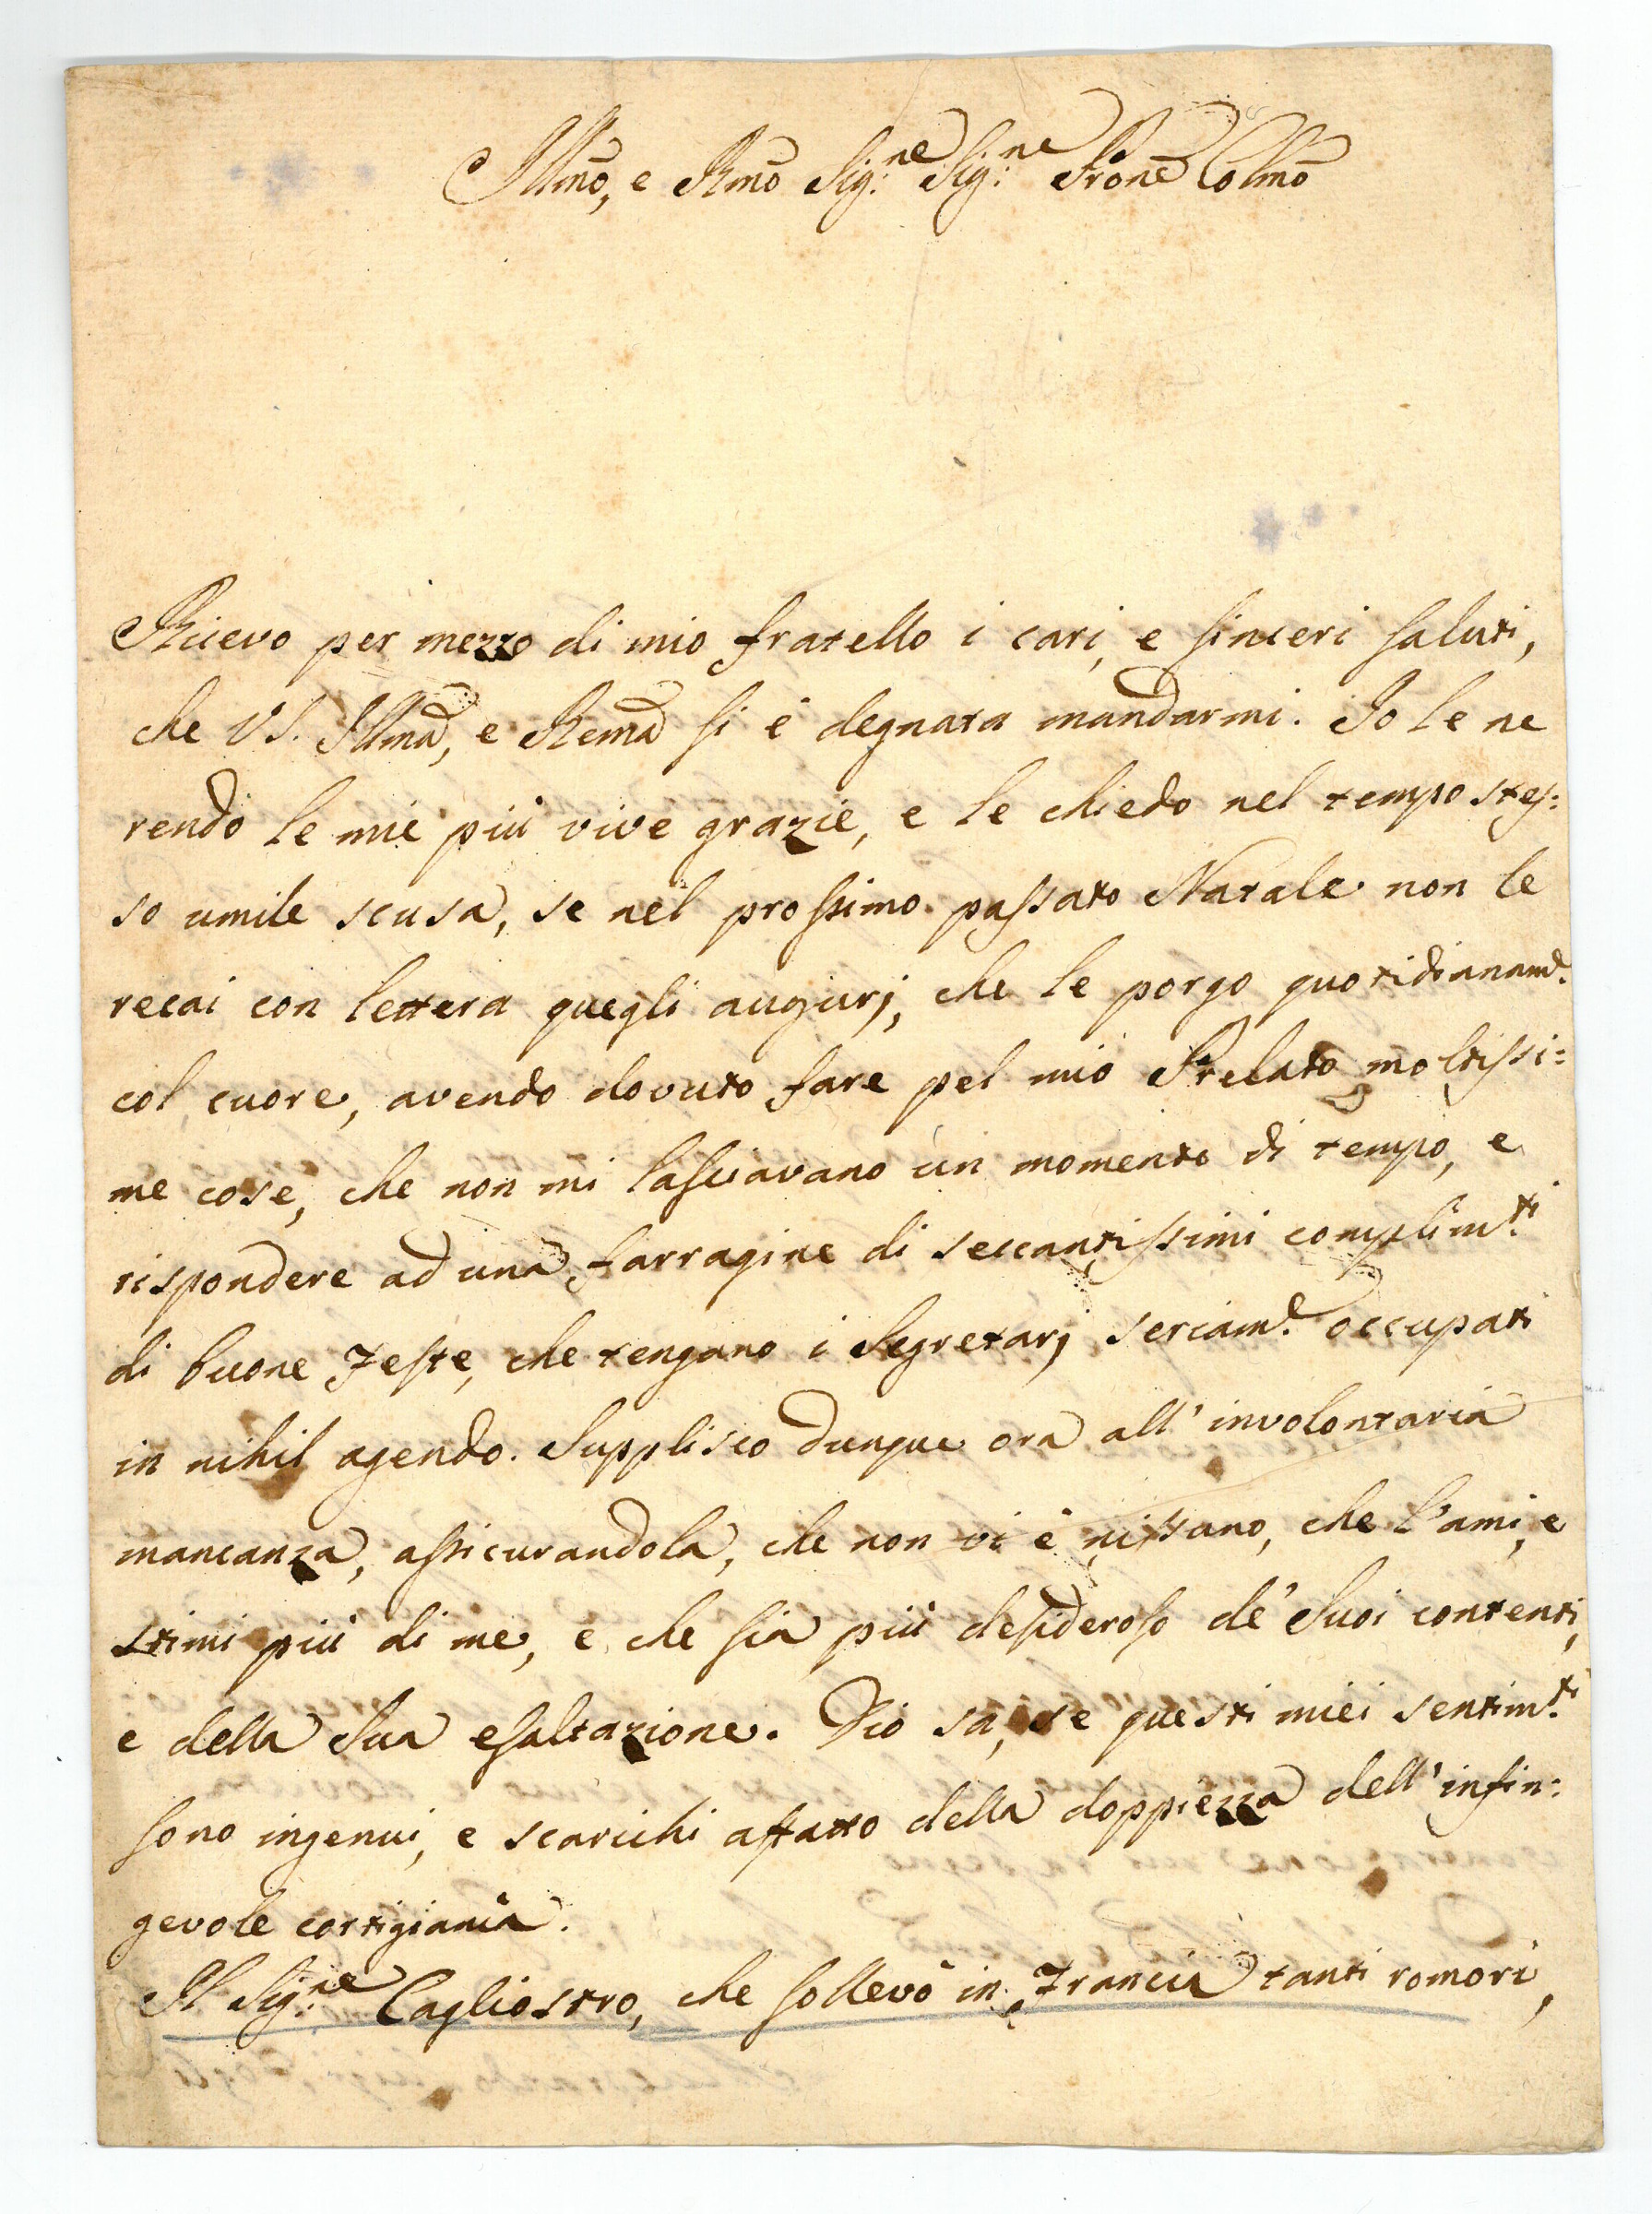 Illmo, e Rmo Sig:ne Sig:ne Prone Colmo
Ricevo per mezzo di mio fratello i cari, e sinceri saluti,
che VS. Illma, e Rema si è degnata mandarmi. Io le ne
rendo le mie più vive grazie, e le chiedo nel tempo stes:
so umile scusa, se nel prossimo passato Natale non le
recai con lettera quegli augurj, che le porgo quotidianamte.
col cuore, avendo dovuto fare pel mio Prelato moltissi:
me cose, che non mi lasciavano un momento di tempo, e
rispondere ad una farragine di seccantissimi complimti.
di buone Feste, che tengono i Segretarj seriamte. occupati
in nihil agendo. Supplisco dunque ora all' involontaria
mancanza, assicurandola, che non vi è nissuno, che l'ami, e
stimi più di me, e che sia più desideroso de' Suoi contenti,
e della Sua esaltazione. Dio sa, se questi miei sentimti.
sono ingenui, e scarichi affatto della doppiezza dell' infin:
gevole cortigiania.
Il Sig:re Cagliostro, che sollevò in Francia tanti romori,